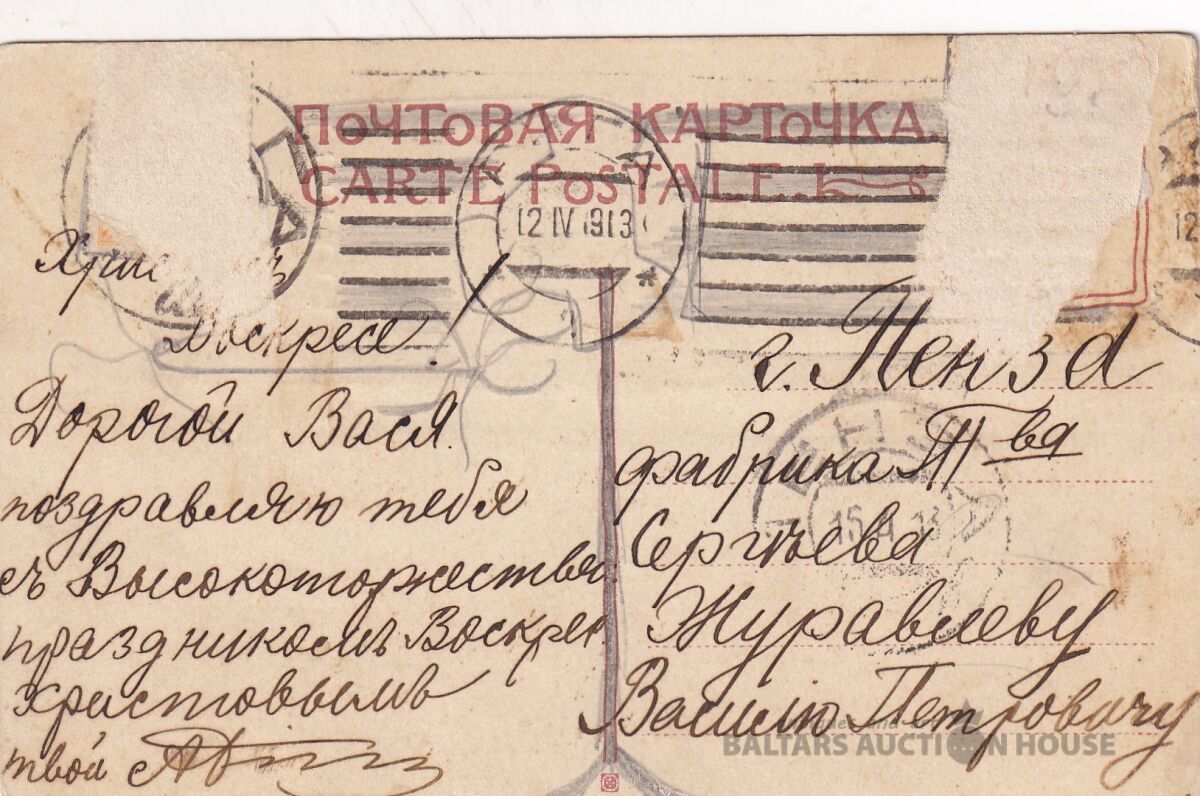 ПОЧТОВАЯ КАРТОЧКА.
CARTE POSTALE.
РИГА
12 IV 1913
Христосъ
Воскресе!
Дорогой Вася.
поздравляю тебя
съ Высокоторжествен
праздникомъ Воскрес
Христовымъ
твой
г. Пенза
фабрика Т-ва
Сергѣева
Журавлеву
Василію Петровичу
ПЕНЗА
15 4 13
BALTARS AUCTION HOUSE